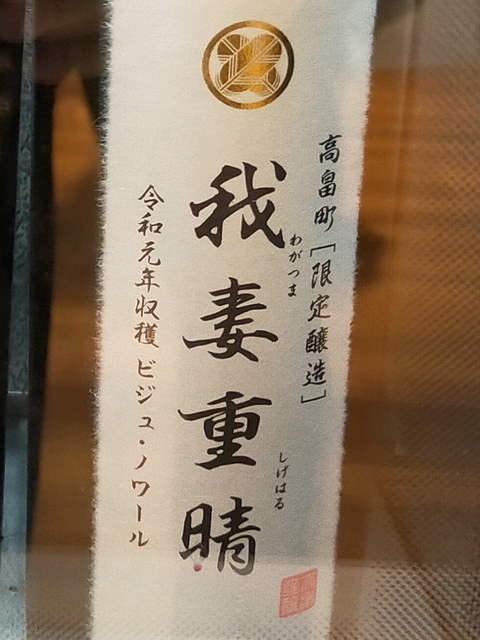 高畠町［限定醸造］
我妻重晴
わがつま
しげはる
令和元年収穫 ビジュ・ノワール